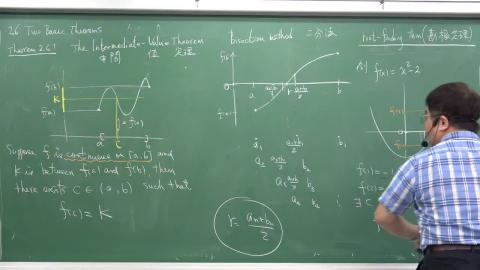 2.6 Two Basic Theorems
Theorem 2.6.1 The Intermediate-Value Theorem
中間 值 定理
f(b)
K
f(a)
a
c
b
Suppose f is continuous on [a,b] and
K is between f(a) and f(b), then
there exists C ∈ (a,b) such that
f(c) = K
Bisection method 二分法
f(b)
0
f(a)
a
r
a+b/2
b
a₁ a₁+b₁/2 b₁
a₂ a₂+b₂/2 b₂
b₃
r = aₙ+bₙ/2
root-finding Thm (勘根定理)
例 f(x) = x²-2
f(1) = -1
f(2) =
∃ C